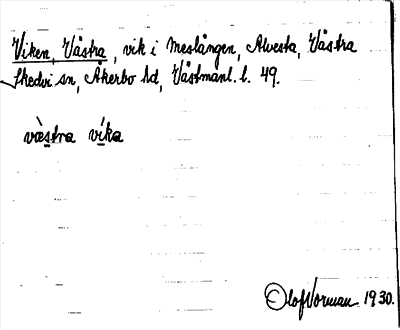 Viken, Västra, vik i Meslången, Alvesta, Västra
Skedvi sn, Åkerbo hd, Västmanl. l. 49.
væ̀stra vı́ka
Olof Vorman 1930.